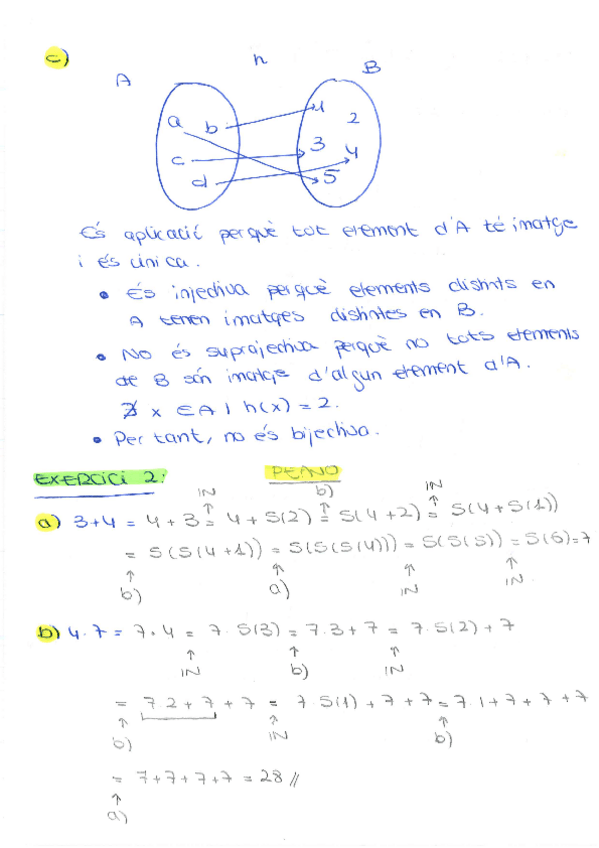 c)
h
A
B
a
b
c
d
1
2
3
4
5
És aplicació perquè tot element d'A té imatge
i és única.
• És injectiva perquè elements distints en
A tenen imatges distintes en B.
• No és suprajectiva perquè no tots elements
de B són imatge d'algun element d'A.
∄ x ∈ A | h(x) = 2.
• Per tant, no és bijectiva.
EXERCICI 2: PEANO
IN b) IN
↑ ↑ ↑
a) 3+4 = 4+3 = 4+S(2) = S(4+2) = S(4+S(1))
= S(S(4+1)) = S(S(S(4))) = S(S(5)) = S(6) = 7
↑ ↑ ↑ ↑
b) a) IN IN
b) 4·7 = 7·4 = 7·S(3) = 7·3+7 = 7·S(2)+7
↑ ↑ ↑
IN b) IN
= 7·2+7+7 = 7·S(1)+7+7 = 7·1+7+7+7
↑ ↑ ↑
b) IN b)
= 7+7+7+7 = 28 //
↑
a)